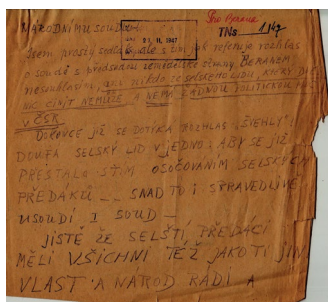 Pro Berana
NÁRODNÍMU SOUDU
27. II. 1947
TNs 1/47
Jsem prostý sedlák ale s tím jak referuje rozhlas
o soudě s předsedou zemědělské strany BERANEM
nesouhlasím, ako nikdo ze selského lidu, KTERÝ DNES
NIC ČINIT NEMŮŽE A NEMÁ ŽÁDNOU POLITICKOU
V ČSR
DOKONCE JIŽ SE DOTÝKÁ ROZHLAS I ŠVEHLY!
DOUFÁ SELSKÝ LID V JEDNO, ABY SE JIŽ
PŘESTALO S TÍM OSOČOVÁNÍM SELSKÝCH
PŘEDÁKŮ -- SNAD TO I SPRAVEDLIVĚ
USOUDÍ I SOUD —
JISTĚ ŽE SELŠTÍ PŘEDÁCI
MĚLI VŠICHNI TÉŽ JAKO TI JINÍ
VLAST A NÁROD RÁDI A